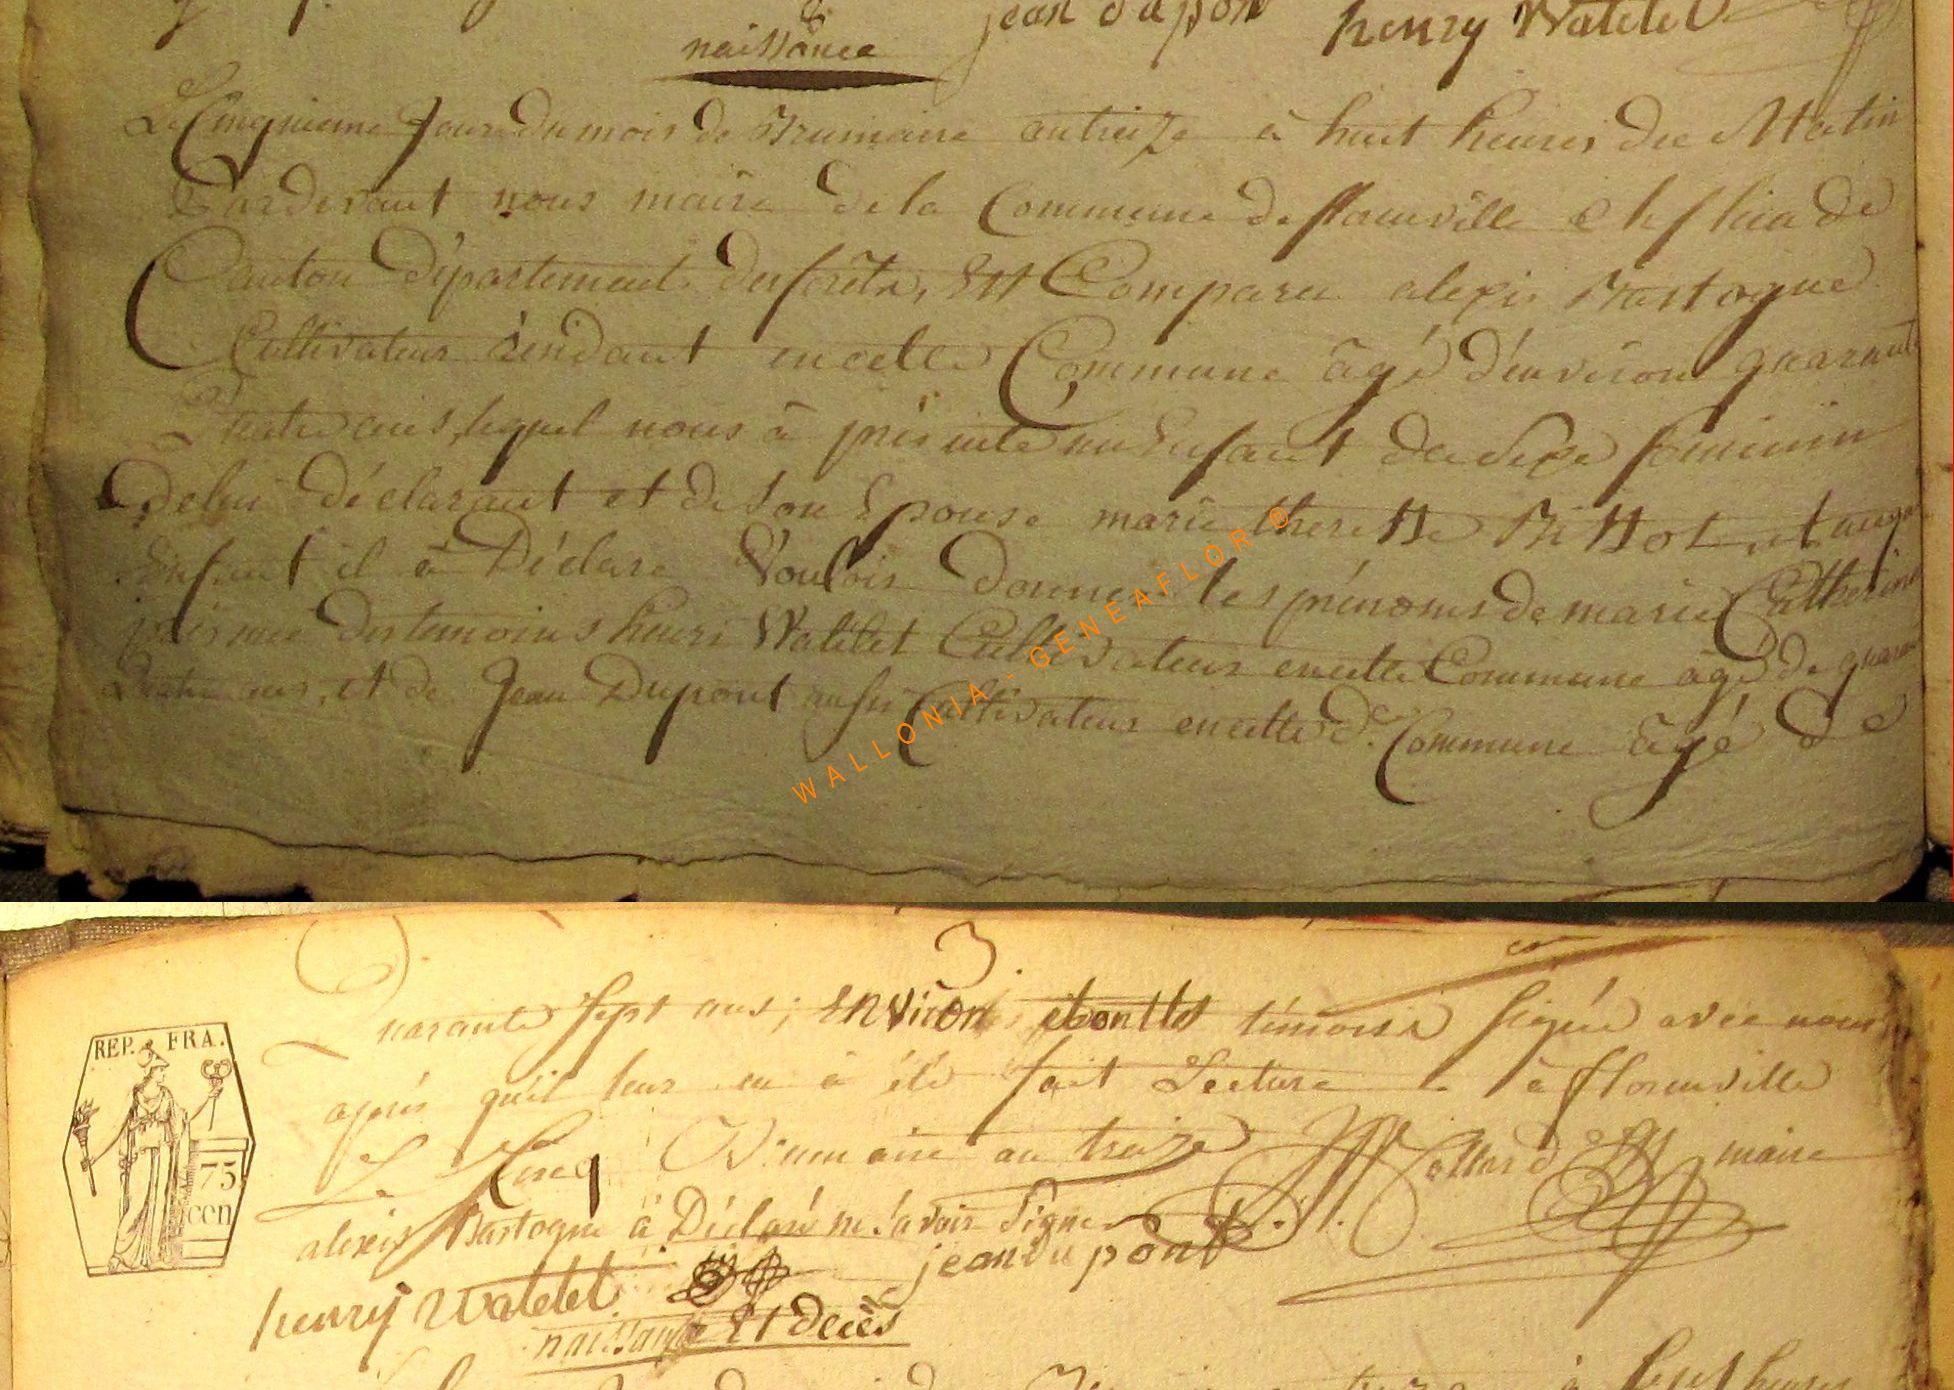 jean dupont henry Watelet
naissance
Le Cinquieme Jour du mois de Brumaire an treize à huit heures du Matin
Pardevant nous maire de la Commune de florenville chef lieu de
Canton Département des forêts, Est Comparu alexis Bastogne
Cultivateur résidant en cette Commune âgé d'environ quarante
Quatre ans, lequel nous à présenté un Enfant du Sexe feminin
de lui déclarant et de Son Epouse marie theresse et auquel
Enfant il à Déclaré Vouloir donner les prénoms de marie Catherine
présence des temoins henri Watelet Cultivateur en cette Commune âgé de quarante
quatre ans, et de Jean Dupont aussi Cultivateur en cette de. Commune âgé de
WALLONIA - GENEAFLOR ©
3.
quarante Sept ans; Environ et ont les témoins Signé avec nous
après qu'il leur en à été fait Lecture à florenville
Le Cinq Brumaire an treize Collard maire
REP. FRA.
75
cen
alexis Bastogne à Déclaré ne Savoir Signer
jean du pont
henry Watelet
naissance Et décès